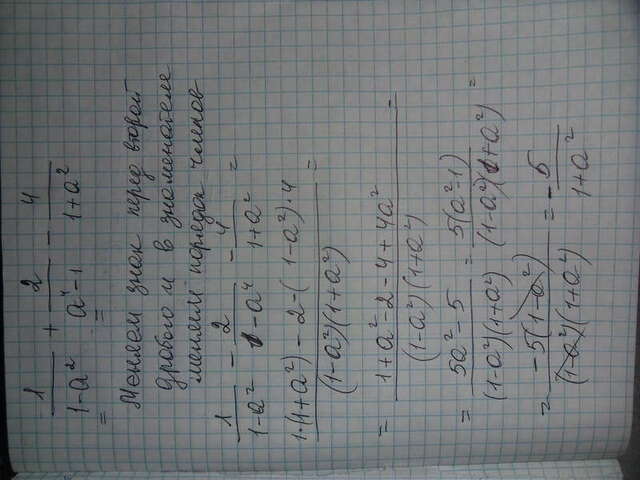 1/(1-a²) + 2/(a⁴-1) - 4/(1+a²) =
Меняем знак перед второй
дробью и в знаменателе
меняем порядок членов
1/(1-a²) - 2/(1-a⁴) - 4/(1+a²) =
1·(1+a²) - 2 - (1-a²)·4 / (1-a²)(1+a²) =
= 1+a²-2-4+4a² / (1-a²)(1+a²) =
= 5a²-5 / (1-a²)(1+a²) = 5(a²-1) / (1-a²)(1+a²) =
= -5(1-a²) / (1-a²)(1+a²) = -5 / 1+a²